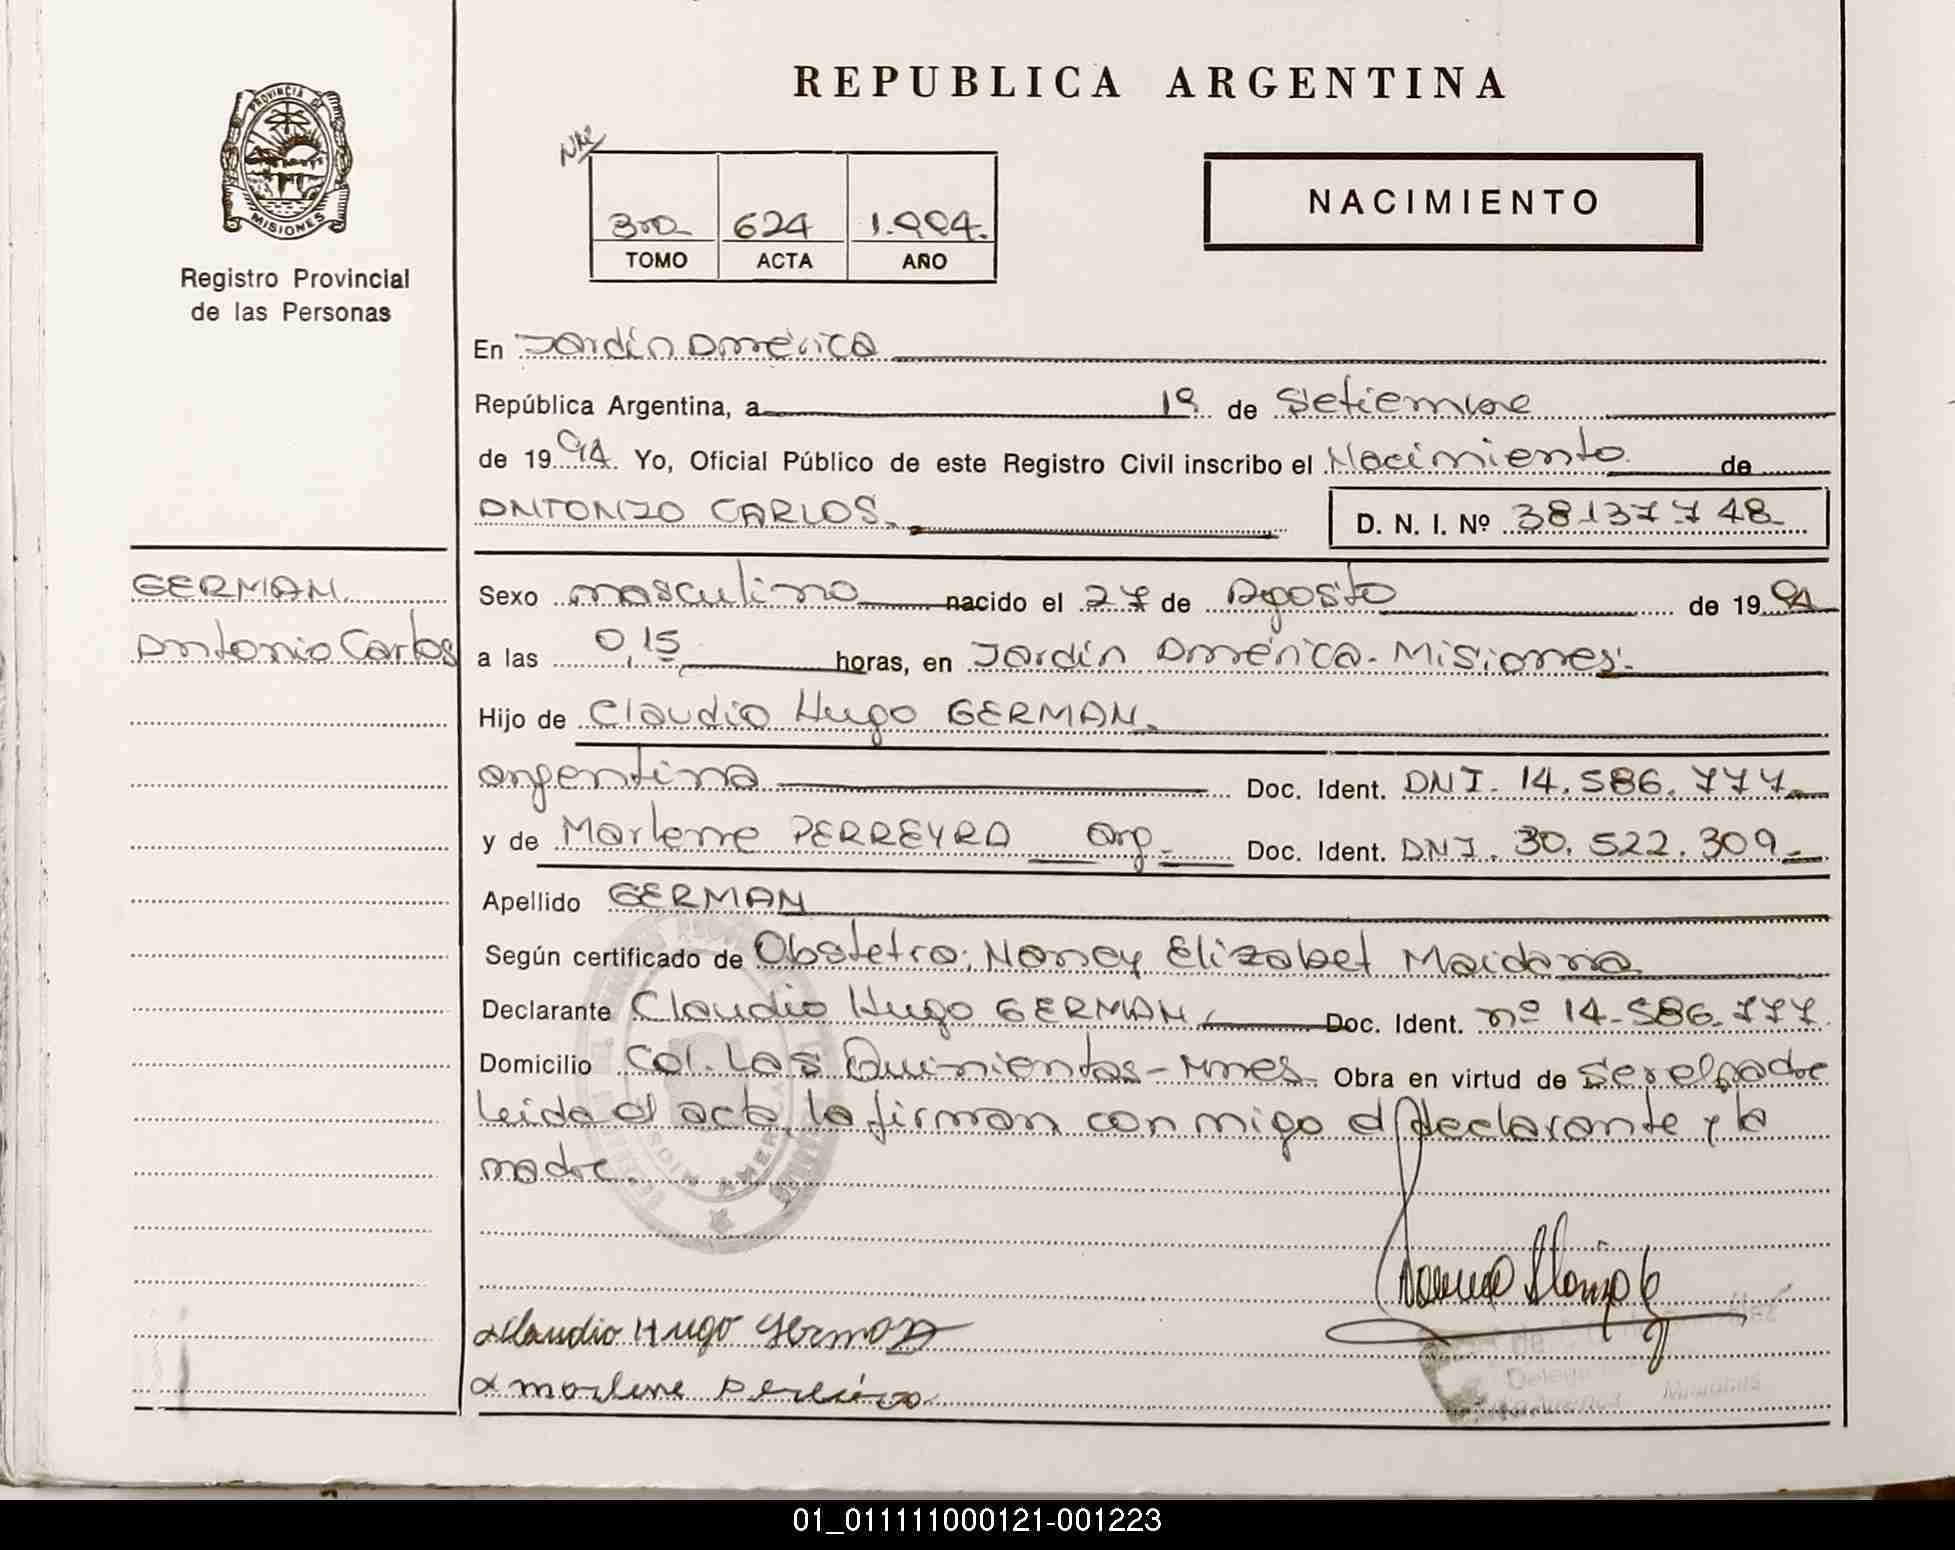 PROVINCIA DE
MISIONES
Registro Provincial
de las Personas
REPUBLICA ARGENTINA
3ro 624 1.994.
TOMO ACTA AÑO
NACIMIENTO
En Jardín América
República Argentina, a 1º de Setiembre
de 1994. Yo, Oficial Público de este Registro Civil inscribo el Nacimiento de
ANTONIO CARLOS. D. N. I. Nº 38137748
GERMAN.
Antonio Carlos
Sexo masculino nacido el 27 de Agosto de 1994
a las 0,15 horas, en Jardín América - Misiones.
Hijo de Claudio Hugo GERMAN.
argentina Doc. Ident. DNI. 14.586.777
y de Marlene PERREYRA arg. Doc. Ident. DNI. 30.522.309
Apellido GERMAN
Según certificado de Obstetra; Nancy Elizabet Maidana
Declarante Claudio Hugo GERMAN, Doc. Ident. nº 14-586.777
Domicilio Col. Las Quinientas - Mnes. Obra en virtud de ser el padre
leida el acta, la firman con migo el declarante y la
madre.
Claudio Hugo German
marlene pereira
01_011111000121-001223